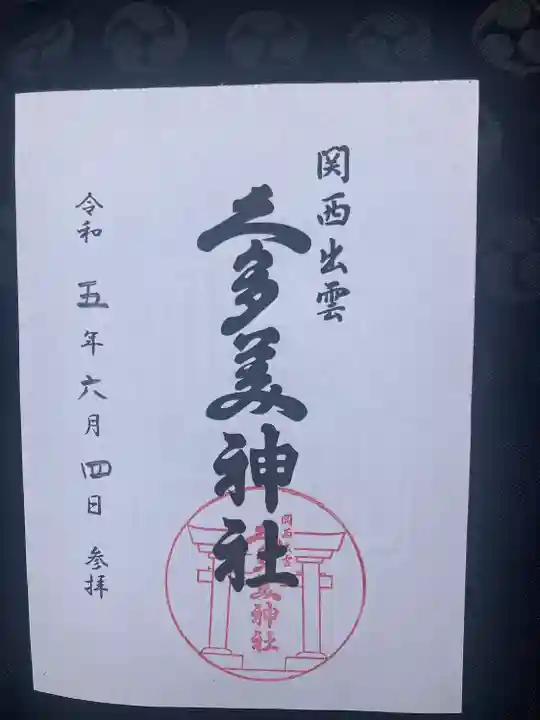 関西出雲
久多美神社
令和五年六月四日 参拝
関西出雲
久多美神社